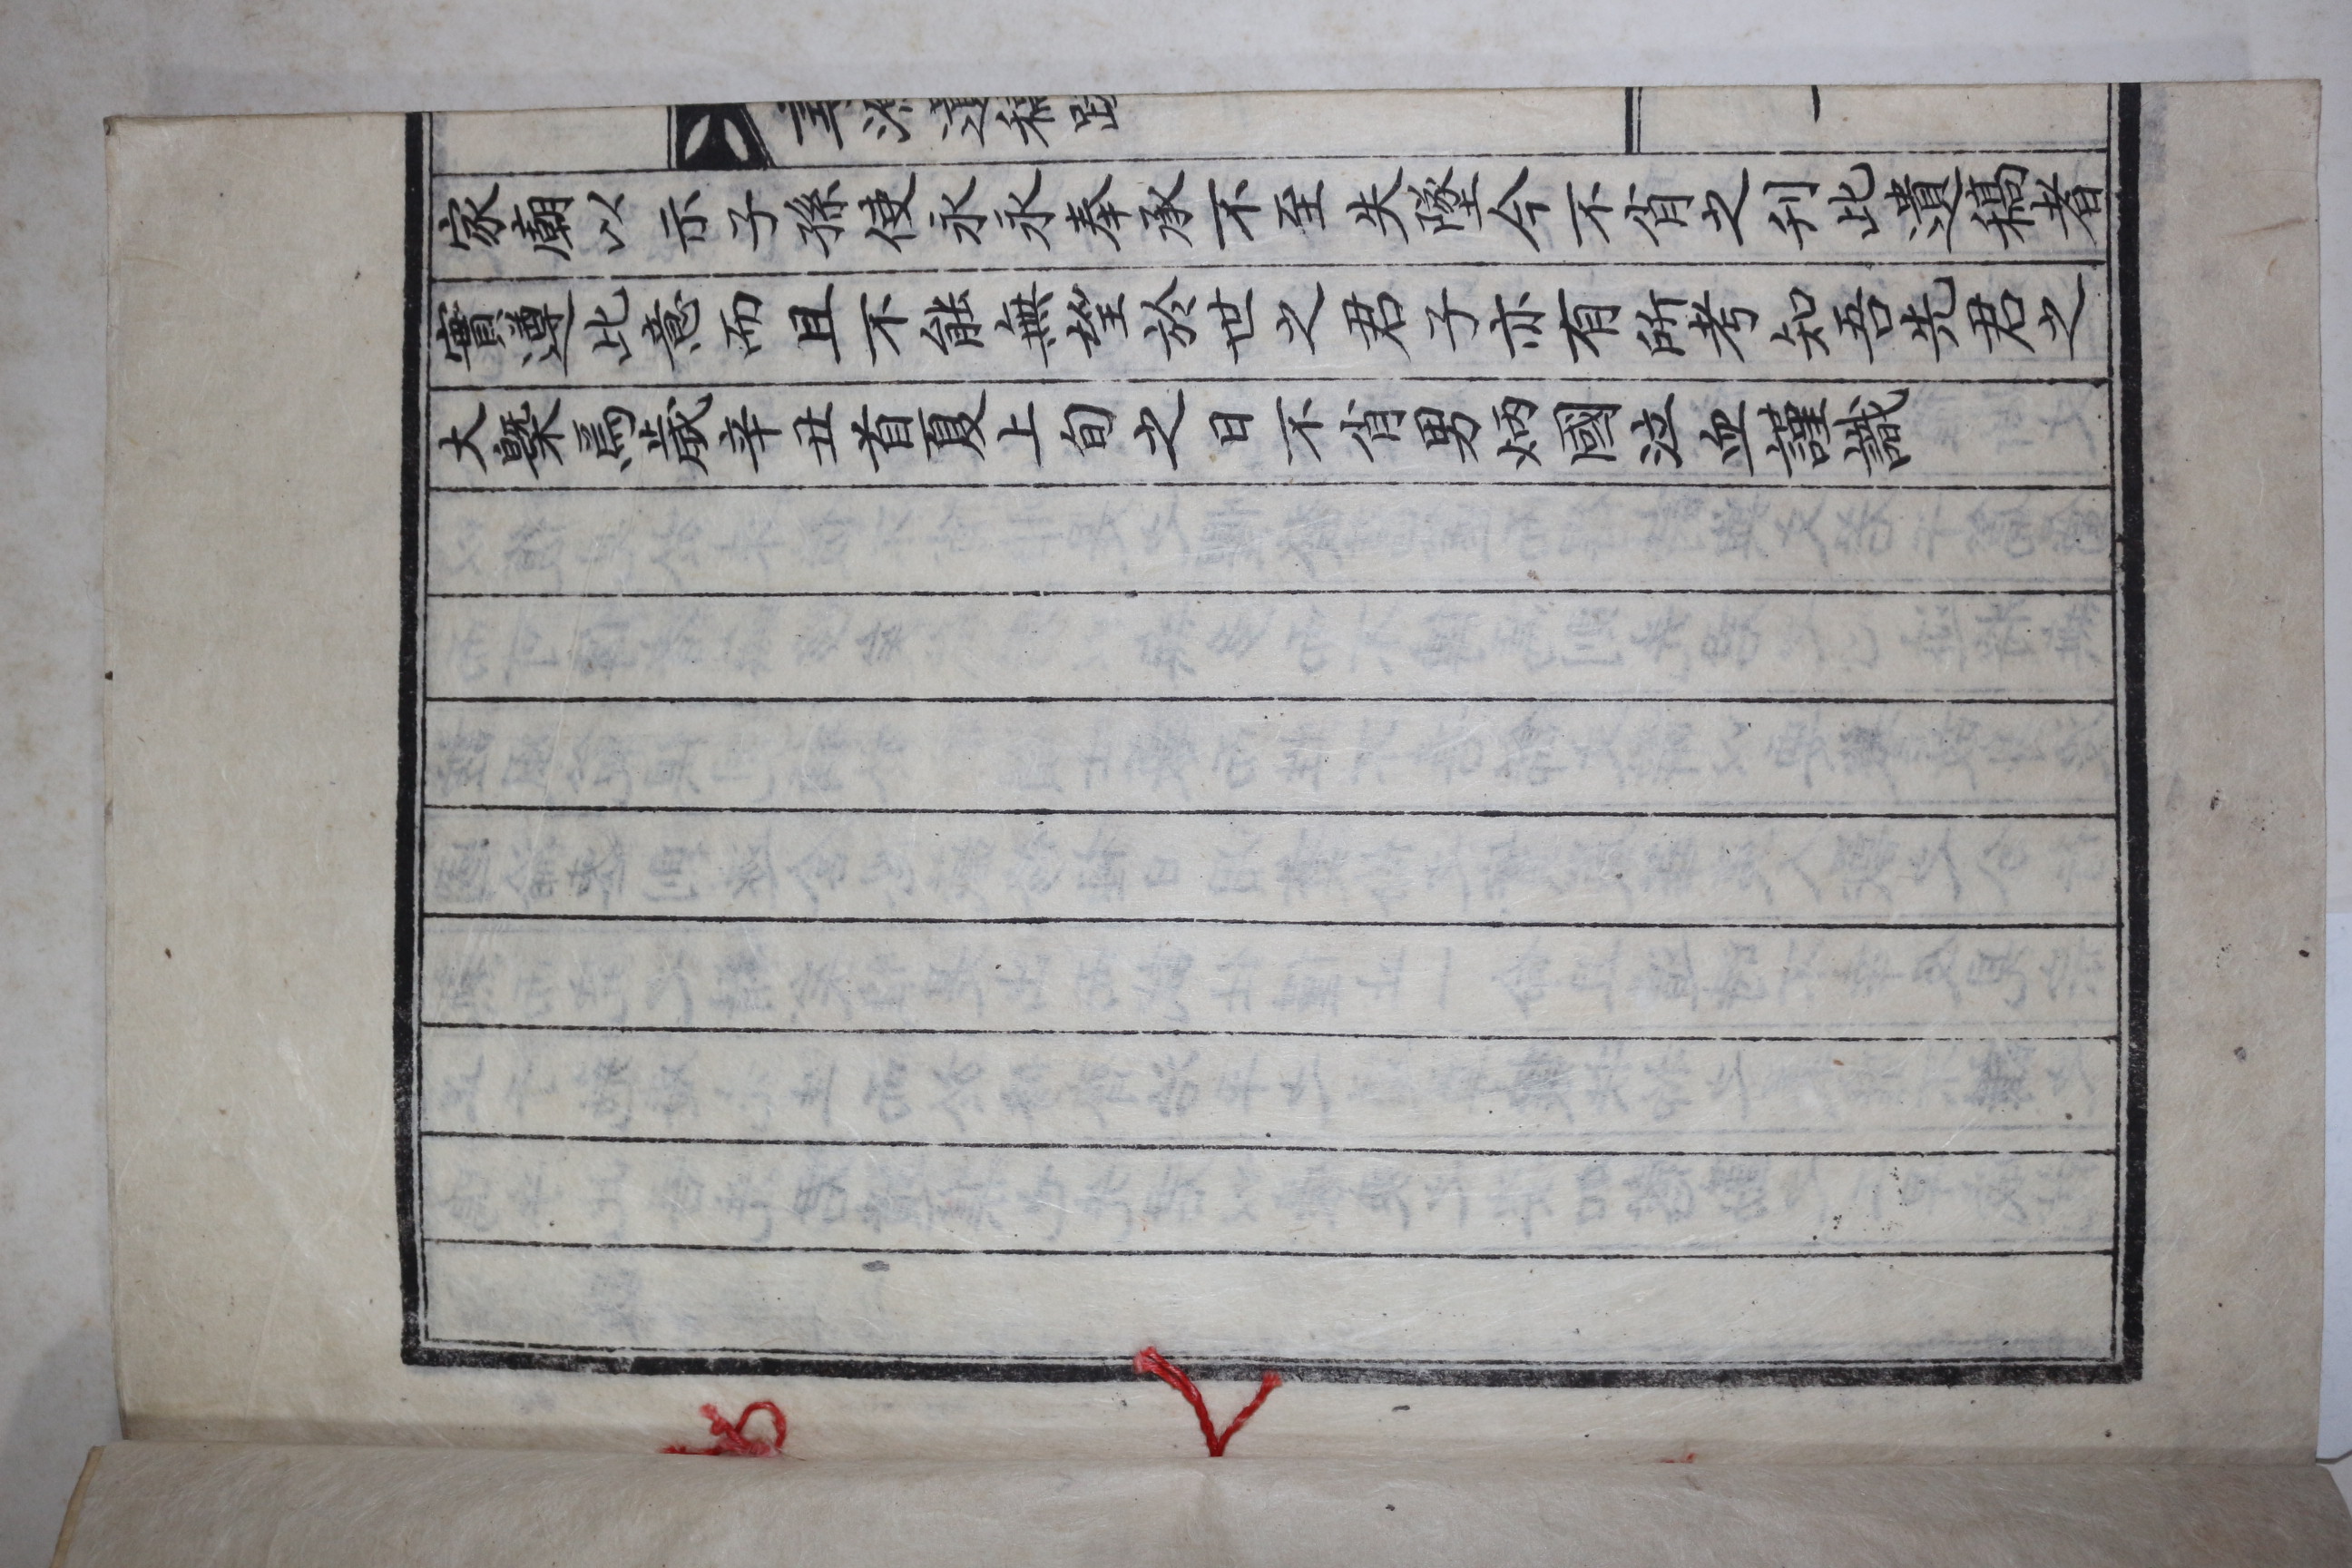 遺稿跋
一
家廟以示子孫使永永奉承不至失墜今不肖之刊此遺稿者
實遵此意而且不能無望於世之君子亦有所考知吾先君之
大槩焉歲辛丑首夏上旬之日不肖男炳國泣血謹識